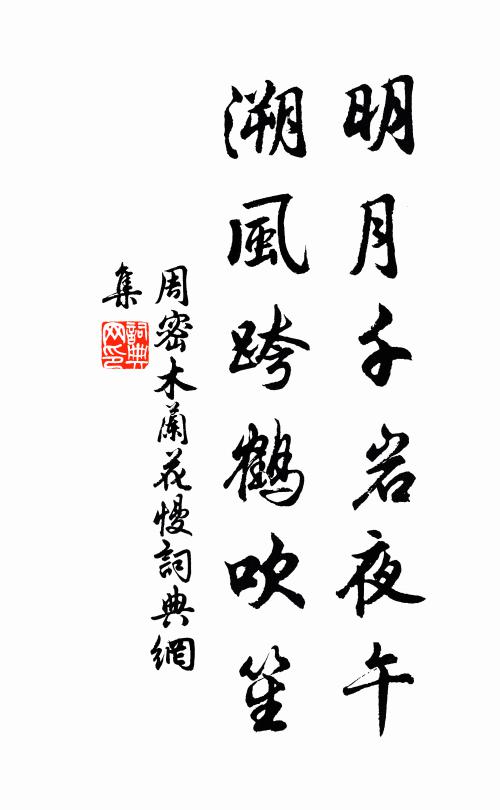 明月千岩夜午
溯風跨鶴吹笙
周密木蘭花慢詞典網
集
詞典网印